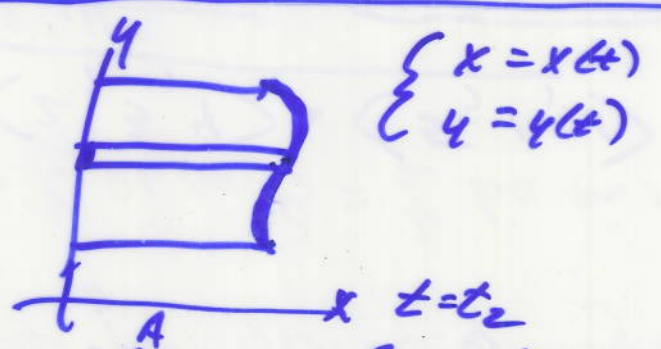 y
{ x = x(t)
y = y(t)
x t=t₂
A